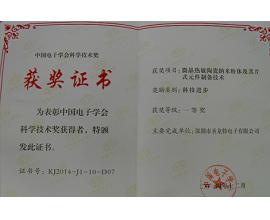 中国电子学会科学技术奖
获奖证书
为表彰中国电子学会
科学技术奖获得者，特颁
发此证书。
证书号：KJ2014-J1-10-D07
获奖项目：微晶热敏陶瓷纳米粉体及其片
式元件制备技术
奖励类别：科技进步
获奖等级：一等奖
主要完成单位：深圳市
电子有限公司
十二月